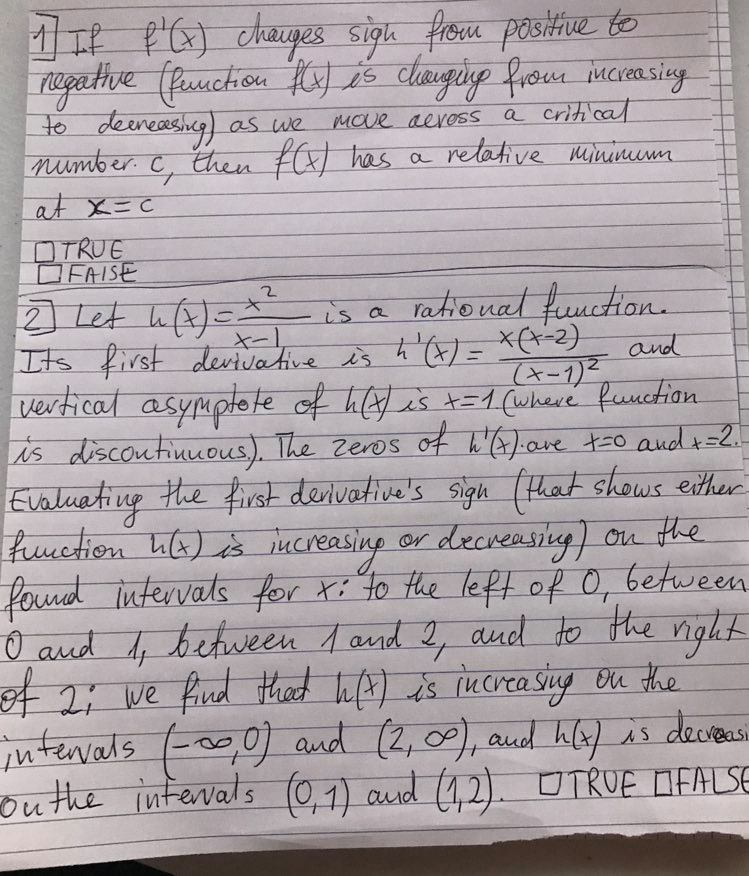 1] If f'(x) changes sign from positive to
negative (function f(x) is changing from increasing
to decreasing) as we move across a critical
number. c, then f(x) has a relative minimum
at x=c
☐ TRUE
☐ FALSE
2] Let h(x) = x²/(x-1) is a rational function.
Its first derivative is h'(x) = x(x-2)/(x-1)² and
vertical asymptote of h(x) is x=1 (where function
is discontinuous.). The zeros of h'(x) are x=0 and x=2.
Evaluating the first derivative's sign (that shows either
function h(x) is increasing or decreasing) on the
found intervals for x: to the left of 0, between
0 and 1, between 1 and 2, and to the right
of 2; we find that h(x) is increasing on the
intervals (-∞,0) and (2,∞), and h(x) is decreasi
on the intervals (0,1) and (1,2). ☐ TRUE ☐ FALSE